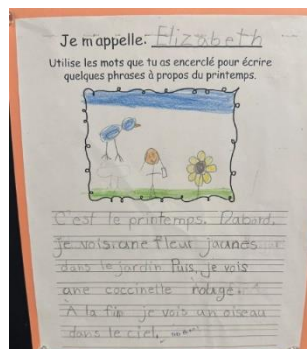 Je m'appelle: Elizabeth
Utilise les mots que tu as encerclé pour écrire
quelques phrases à propos du printemps.
C'est le printemps. Dabord,
je vois une fleur jaunes
dans le jardin. Puis, je vois
une coccinelle rouge.
À la fin je vois un oiseau
dans le ciel.